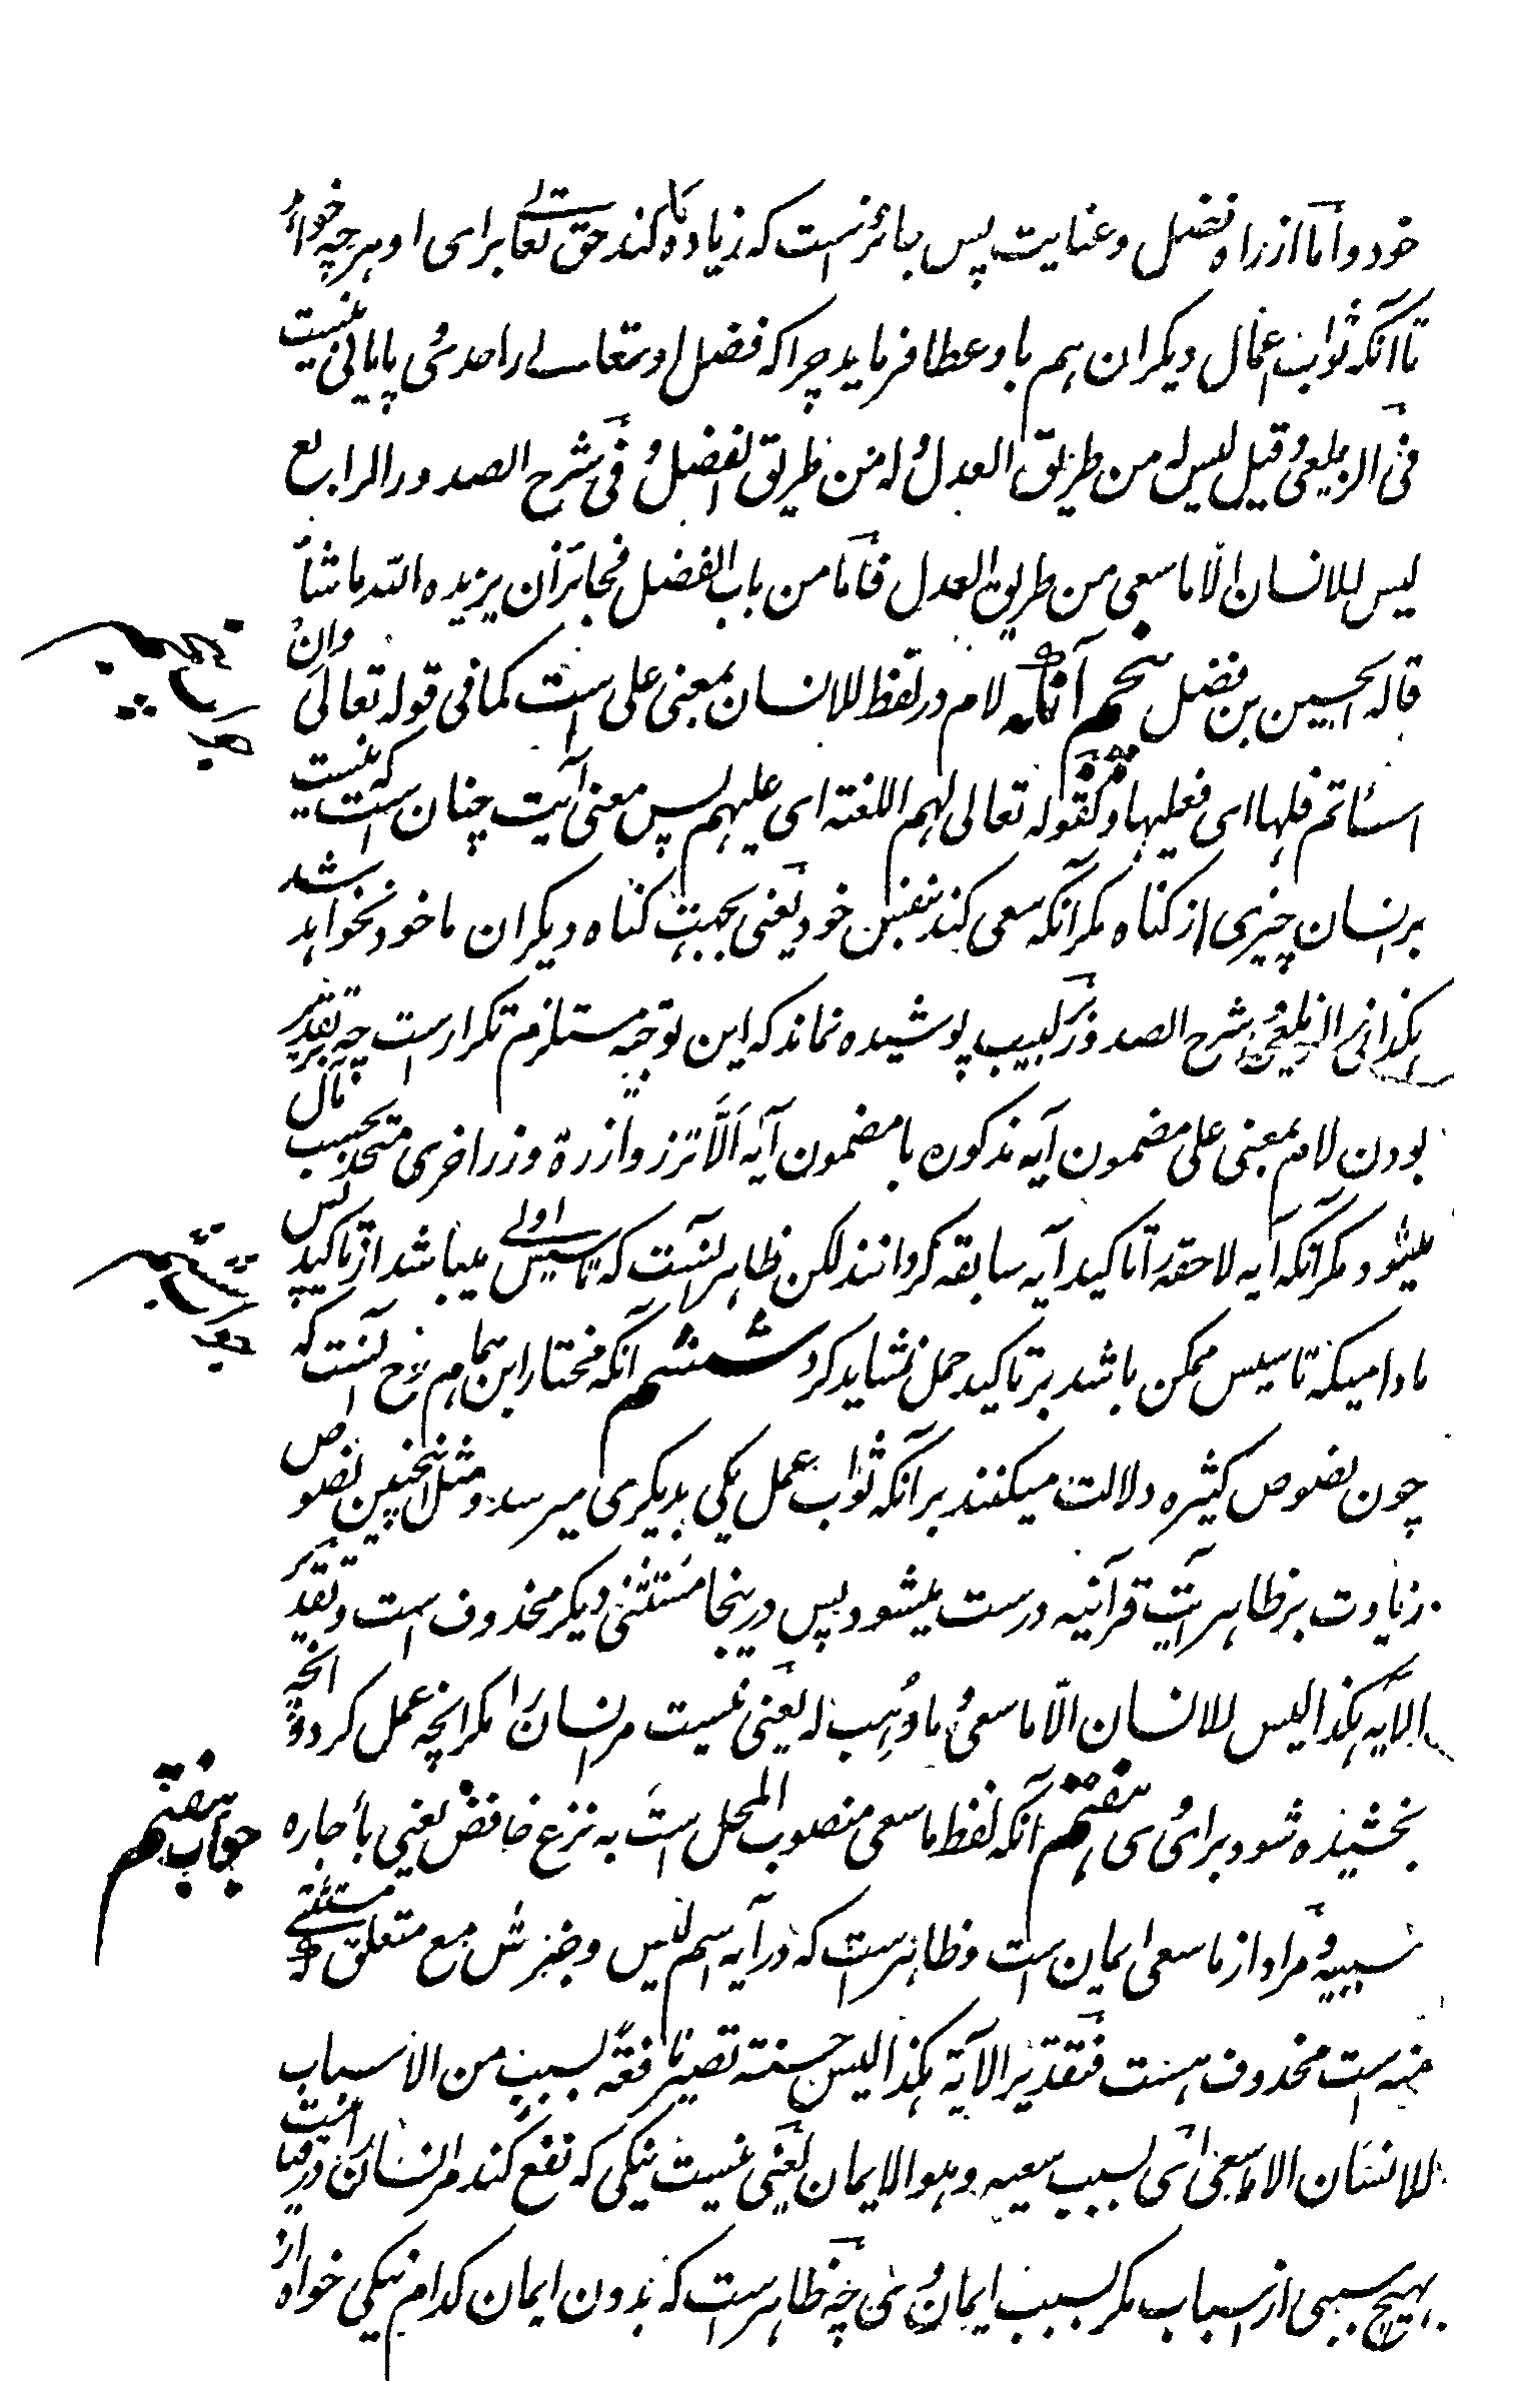 خود و اما از راه فضل و عنایت پس جائز است که زیاده کند حق تعالے برای او هر چه خواهد
تا آنکه ثواب اعمال دیگران هم باو عطا فرماید چرا که فضل او تعالے را حدی پایانی نیست
فی الزیلعی و قیل لیس له من طریق العدل و له من طریق الفضل و فی شرح الصدور الرابع
لیس للانسان الا ما سعی من طریق العدل فاما من باب الفضل فجائز ان یزیده الله ما شاء
قاله الحسین بن فضل پنجم آنکه لام در لفظ للانسان بمعنی علی است کما فی قوله تعالی وان
اسأتم فلها ای فعلیها و کقوله تعالی لهم اللعنة ای علیهم پس معنی آیت چنان است که نیست
بر انسان چیزی از گناه مگر آنکه سعی کند بنفس خود یعنی بجهت گناه دیگران ماخوذ نخواهد شد
هکذا فی الزیلعی و شرح الصدور بر لبیب پوشیده نماند که این توجیه مستلزم تکرار است چه بر تقدیر
بودن لام بمعنی علی مضمون آیه مذکوره با مضمون آیه الا تزر وازرة وزر اخری متحد بحسب مآل
میشود مگر آنکه آیه لاحقه را تاکید آیه سابقه گردانند لکن ظاهر آنست که تاسیس اولے میباشد از تاکید پس
مادامیکه تاسیس ممکن باشد بر تاکید حمل نشاید کرد ششم آنکه مختار ابن همام رح آنست که
چون نصوص کثیره دلالت میکنند بر آنکه ثواب عمل یکی بدیگری میرسد و مثل اینچنین نصوص
زیادت بر ظاهر آیت قرآنیه درست میشود پس درینجا مستثنی دیگر محذوف است و تقدیر
الایه هکذا لیس للانسان الا ما سعی و ما وهب له یعنی نیست مر انسان را مگر آنچه عمل کرد و آنچه
بخشیده شود برای وی هفتم آنکه لفظ ما سعی منصوب المحل است به نزع خافض یعنی با جاره
سببیه و مراد از ما سعی ایمان است و ظاهر است که در آیه اسم لیس و خبرش مع متعلق و مستثنے
منه است محذوف هست فتقدیر الآیة هکذا لیس حسنة تصیر نافعة بسبب من الاسباب
للانسان الا ما سعی ای بسبب سعیه و هو الایمان یعنی نیست نیکی که نفع کند مر انسان را در قیامت
بهیچ سببی از اسباب مگر بسبب ایمان وی چه ظاهر است که بدون ایمان کدام نیکی خواه از
جواب پنجم
جواب ششم
جواب هفتم